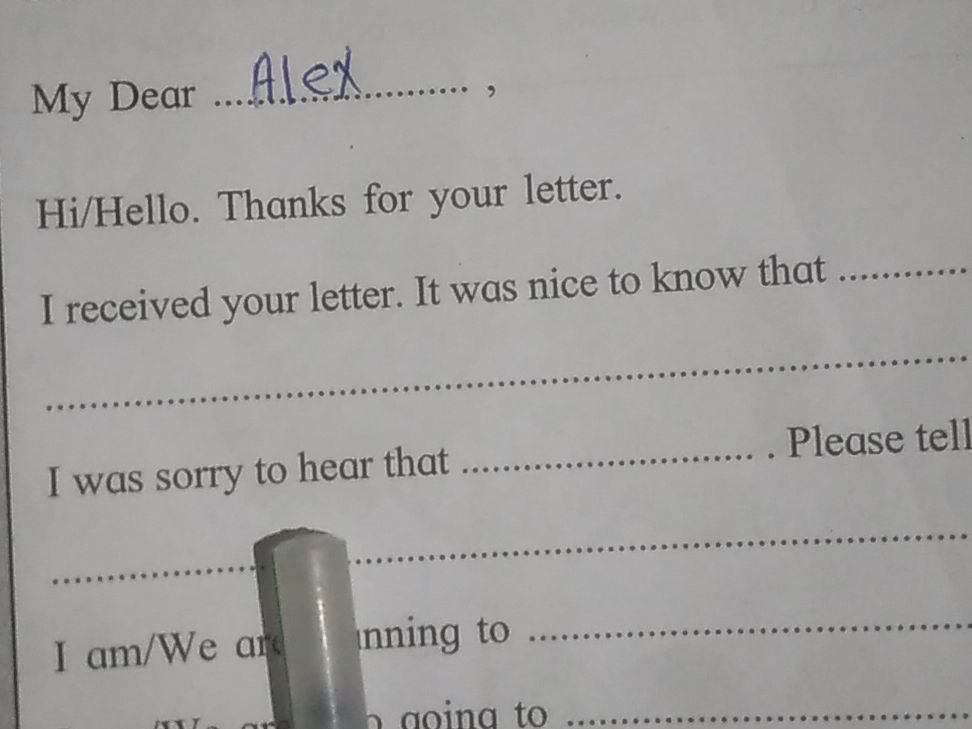 My Dear ....Alex.................. ,
Hi/Hello. Thanks for your letter.
I received your letter. It was nice to know that ............
................................................................................
I was sorry to hear that ............................. . Please tell
................................................................................
I am/We to ........................................
going to ....................................